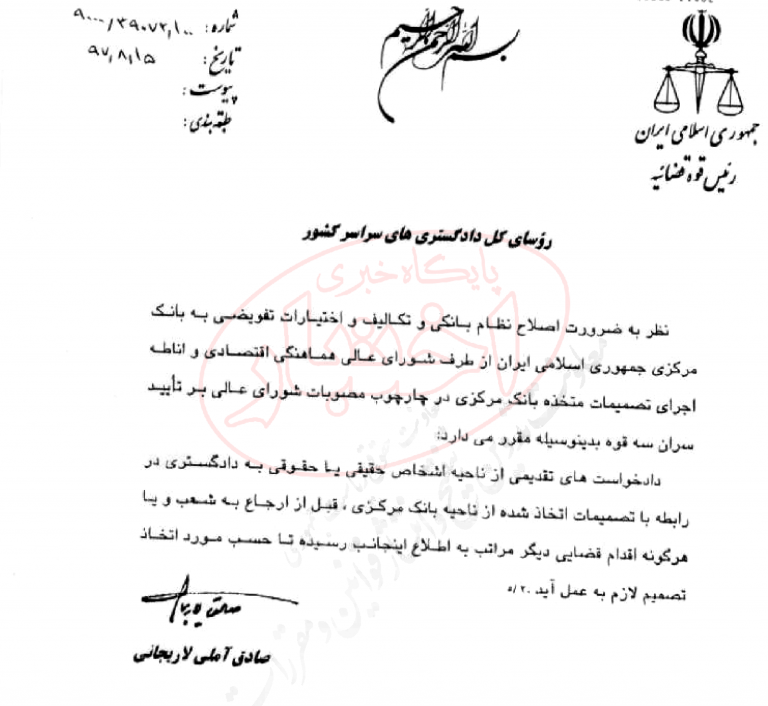 شماره: ۹۰۰۰/۳۹۰۷۲/۱۰۰
تاریخ: ۹۷/۸/۱۵
پیوست:
طبقه بندی:
بسم الله الرحمن الرحیم
جمهوری اسلامی ایران
رئیس قوه قضائیه
رؤسای کل دادگستری های سراسر کشور
پایگاه خبری
اختبار
نظر به ضرورت اصلاح نظام بانکی و تکالیف و اختیارات تفویضی به بانک
مرکزی جمهوری اسلامی ایران از طرف شورای عالی هماهنگی اقتصادی و اناطه
اجرای تصمیمات متخذه بانک مرکزی در چارچوب مصوبات شورای عالی بر تأیید
سران سه قوه بدینوسیله مقرر می دارد:
دادخواست های تقدیمی از ناحیه اشخاص حقیقی یا حقوقی به دادگستری در
رابطه با تصمیمات اتخاذ شده از ناحیه بانک مرکزی ، قبل از ارجاع به شعب و یا
هرگونه اقدام قضایی دیگر مراتب به اطلاع اینجانب رسیده تا حسب مورد اتخاذ
تصمیم لازم به عمل آید .۵/۲۰
صادق آملی لاریجانی